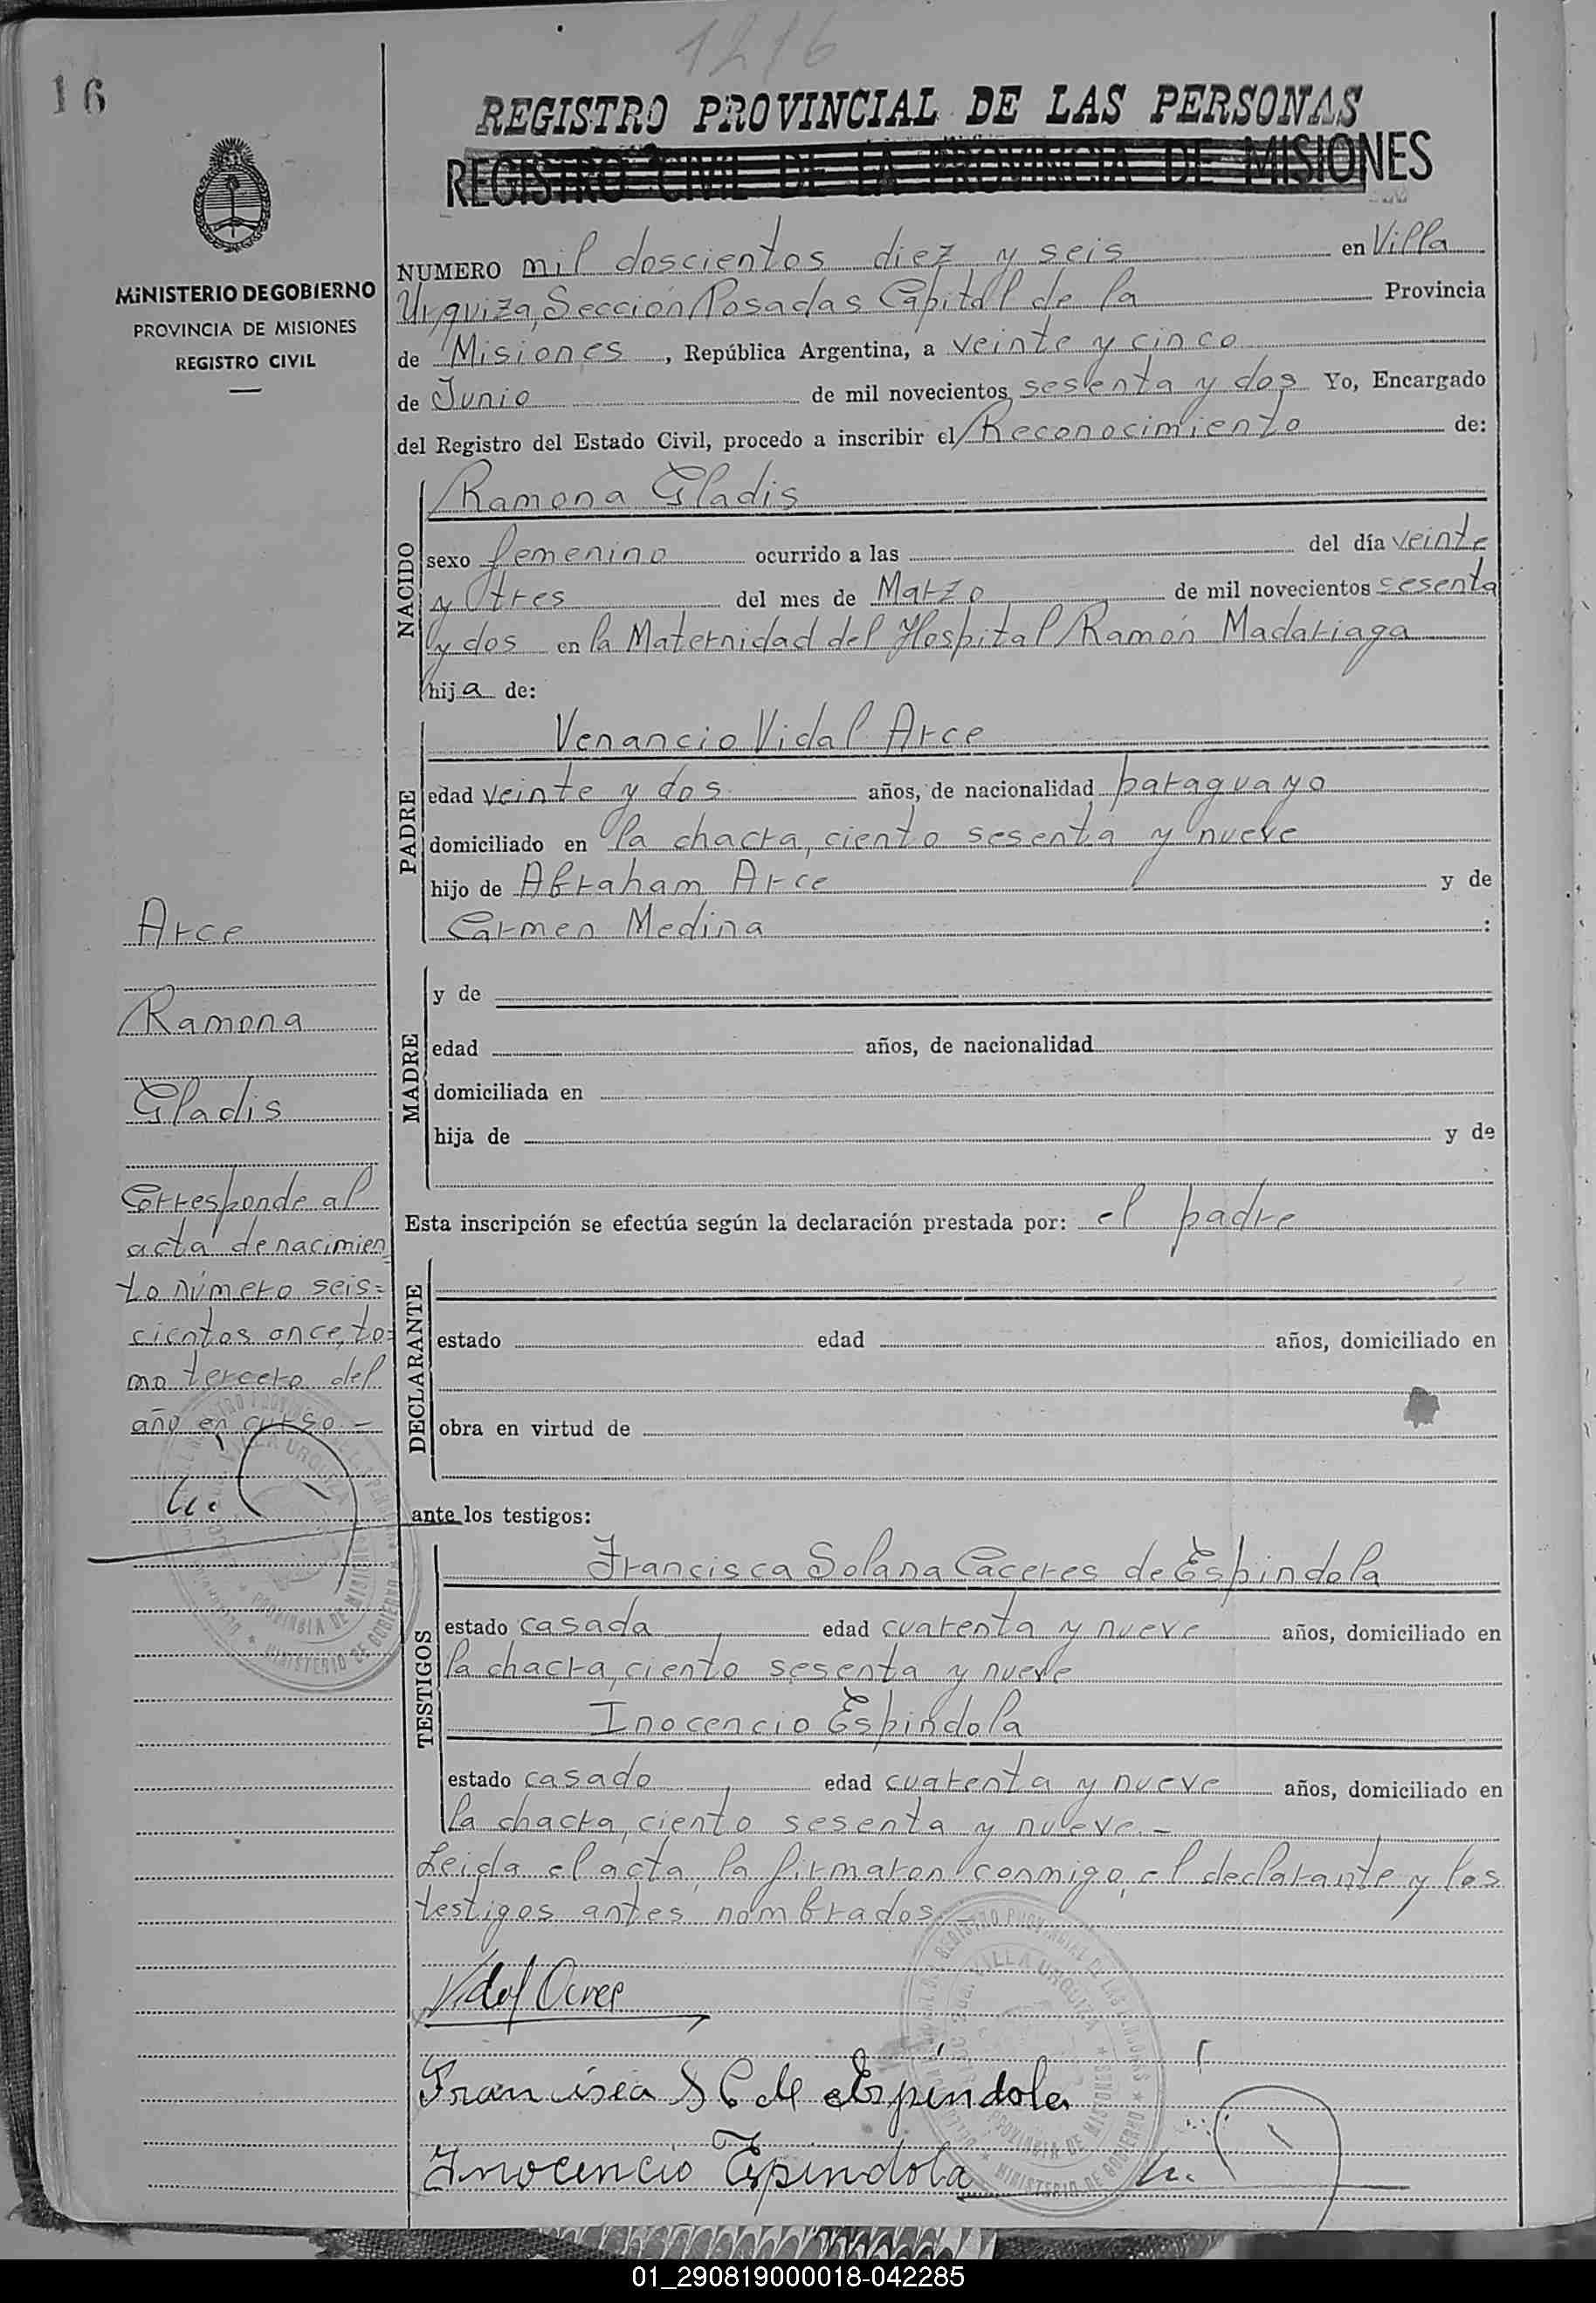 1216
16
REGISTRO PROVINCIAL DE LAS PERSONAS
REGISTRO CIVIL DE LA PROVINCIA DE MISIONES
MINISTERIO DE GOBIERNO
PROVINCIA DE MISIONES
REGISTRO CIVIL
NUMERO mil doscientos diez y seis en Villa
Urquiza, Sección Posadas Capital de la Provincia
de Misiones, República Argentina, a veinte y cinco
de Junio de mil novecientos sesenta y dos Yo, Encargado
del Registro del Estado Civil, procedo a inscribir el Reconocimiento de:
NACIDO
Ramona Gladis
sexo femenino ocurrido a las del día veinte
y tres del mes de Marzo de mil novecientos sesenta
y dos en la Maternidad del Hospital Ramón Madariaga
hija de:
PADRE
Venancio Vidal Arce
edad veinte y dos años, de nacionalidad paraguayo
domiciliado en la chacra, ciento sesenta y nueve
hijo de Abraham Arce y de
Carmen Medina :
MADRE
y de
edad años, de nacionalidad
domiciliada en
hija de y de
Esta inscripción se efectúa según la declaración prestada por: el padre
DECLARANTE
estado edad años, domiciliado en
obra en virtud de
ante los testigos:
TESTIGOS
Francisca Solana Caceres de Espindola
estado casada edad cuarenta y nueve años, domiciliado en
la chacra, ciento sesenta y nueve
Inocencio Espindola
estado casado edad cuarenta y nueve años, domiciliado en
la chacra, ciento sesenta y nueve.-
Leida el acta, la firmaron conmigo, el declarante y los
testigos antes nombrados.-
Vidal Arce
Francisca S C de Espíndola
Inocencio Espindola
Arce
Ramona
Gladis
Corresponde al
acta de nacimien
to número seis=
cientos once, to=
mo tercero del
año en curso.-
VILLA URQUIZA
PROVINCIA DE MISIONES
MINISTERIO DE GOBIERNO
REGISTRO PROVINCIAL DE LAS PERSONAS
VILLA URQUIZA
PROVINCIA DE MISIONES
MINISTERIO DE GOBIERNO
01_290819000018-042285